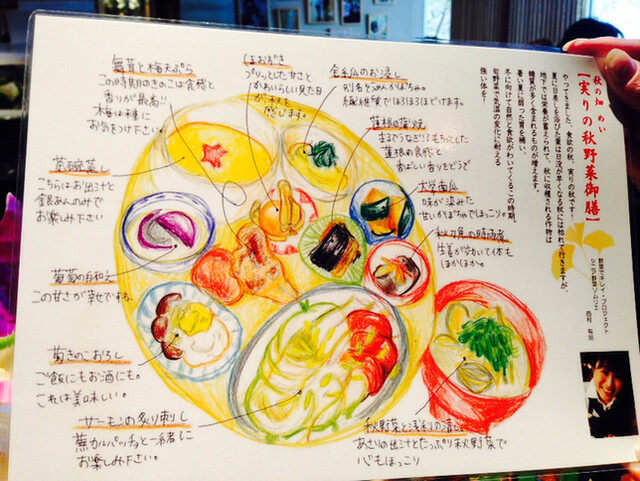 秋の知 めい
【実りの秋野菜御膳】
やってきました、食欲の秋、実りの秋です！
夏に日差しを浴びた葉は日没が早くなる秋には枯れて行きますが、
地下では栄養が蓄えられて、秋に収穫される作物は
糖質が多く含まれるものが増えます。
暑い夏に弱った胃を補い、
冬に向けて自然と食欲がわいてくるこの時期、
旬野菜で気温の変化に耐える
強い体を！
野菜でキレイ・プロジェクト
シニア野菜ソムリエ
西村 有加
舞茸と梅天ぷら
この時期のきのこは食感と
香りが最高!!
梅の種に
お気をつけ下さい。
ほおずき
プリッとした甘さと
かわいらしい見た目
が秋を
感じます。
金糸瓜のお浸し
別名そうめんかぼちゃ。
繊維質でほろほろほどけます。
蓮根の蒲焼
まるでうなぎ!?もちっとした
蓮根の食感と
香ばしい香りをどうぞ
大学南瓜
味が染みた
甘いかぼちゃでほっこり。
秋刀魚の時雨煮
生姜が効いて体も
ほかほか。
茶碗蒸し
こちらはお出汁と
銀あんのみで
お楽しみ下さい
葡萄の白和え
この甘さが幸せですね。
菊きのこおろし
ご飯にもお酒にも。
これは美味しい。
サーモンの炙り刺し
蕪カルパッチョと一緒に
お楽しみ下さい。
秋野菜と浅利の
あさりの出汁とたっぷり秋野菜で
心もほっこり